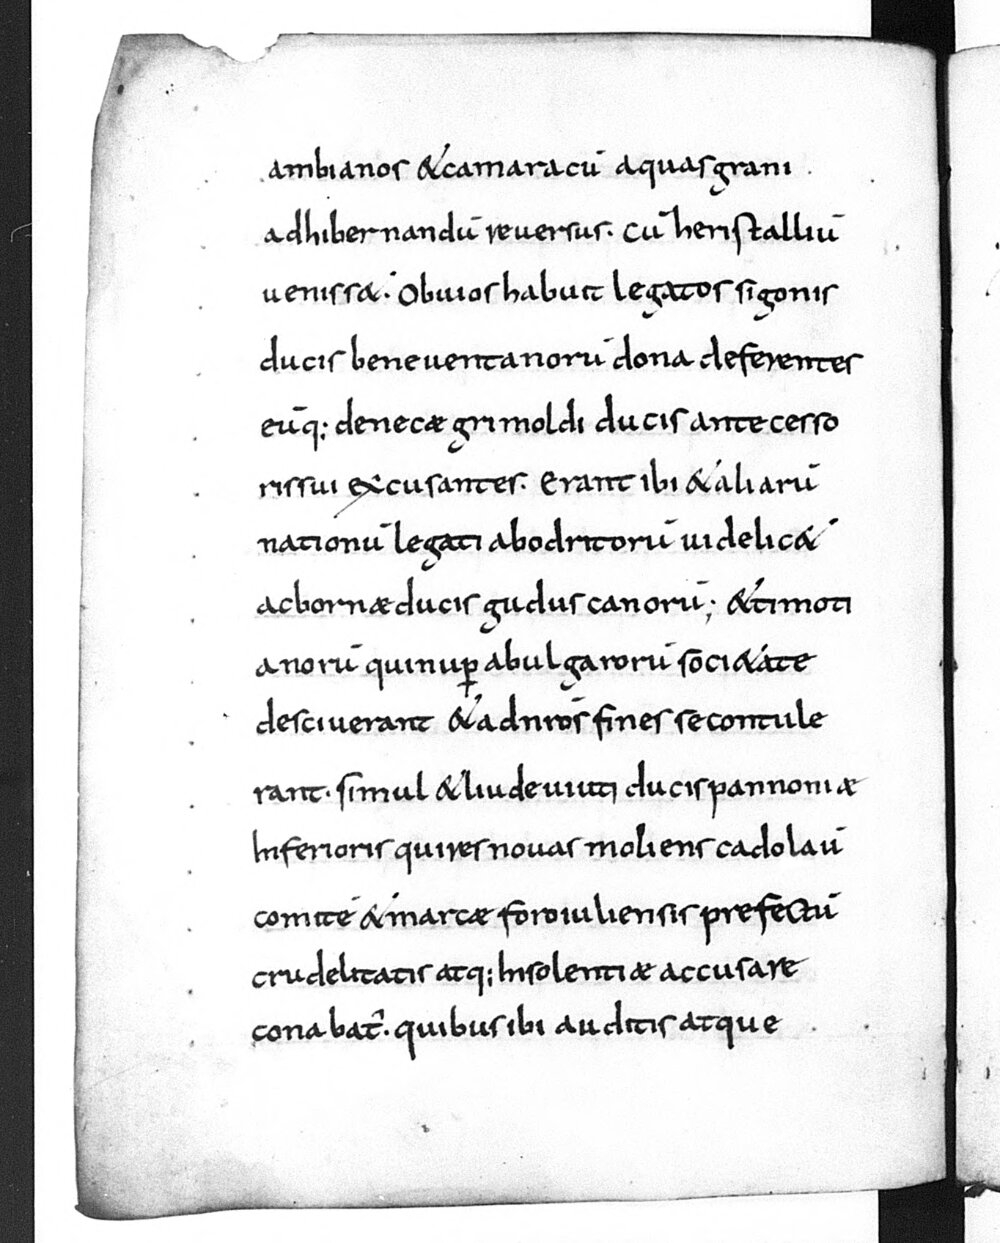 ambianos &camaracū aquasgrani
adhibernandū reuersus. cū heristalliū
ueniss&. Obuios habuit legatos sigonis
ducis beneuentanorū dona deferentes
eūq; denecæ grimoldi ducis antecesso
rissui excusantes. Erant ibi &aliarū
nationū legati abodritorū uidelic&
acbornæ ducis guduscanorū; &timoti
anorū quinuꝑ abulgarorū soci&ate
desciuerant &adnros̄ fines secontule
rant. simul &liudeuuiti ducis pannoniæ
Inferioris quires nouas moliens cadolaū
comitē &marcæ foroiuliensis prefectū
crudelitatis atq; Insolentiæ accusare
conabat᷑. quibus ibi auditis atque